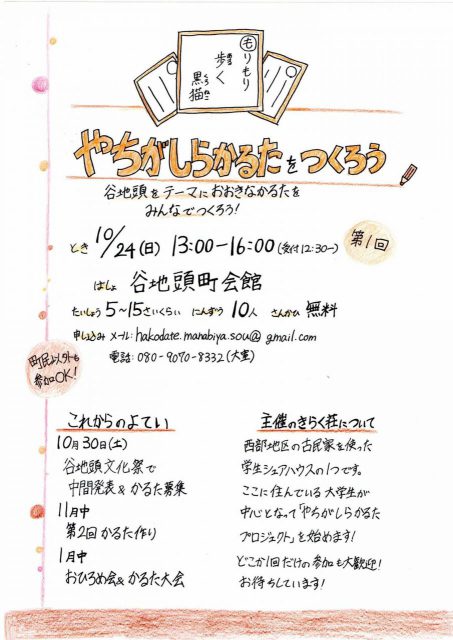 もりもり
歩く
ある
黒猫
くろねこ
やちがしらかるたをつくろう
谷地頭をテーマにおおきなかるたを
みんなでつくろう!
とき 10/24(日) 13:00-16:00(受付12:30~)
第1回
ばしょ 谷地頭町会館
たいしょう 5~15さいくらい にんずう 10人 さんかひ 無料
申し込み メール:hakodate.manabiya.sou@gmail.com
電話:080-9070-8332(大室)
町民以外も
参加OK!
これからのよてい
10月30日(土)
谷地頭文化祭で
中間発表&かるた募集
11月中
第2回かるた作り
1月中
おひろめ会&かるた大会
主催のきらく荘について
西部地区の古民家を使った
学生シェアハウスの1つです。
ここに住んでいる大学生が
中心となって「やちがしらかるた
プロジェクト」を始めます!
どこか1回だけの参加も大歓迎!
お待ちしています!